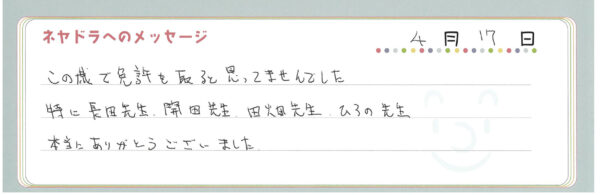 ネヤドラへのメッセージ
4月17日
この様で免許を取ると思ってませんでした
特に長田先生、開田先生、田畑先生、ひろの先生
本当にありがとうございました。